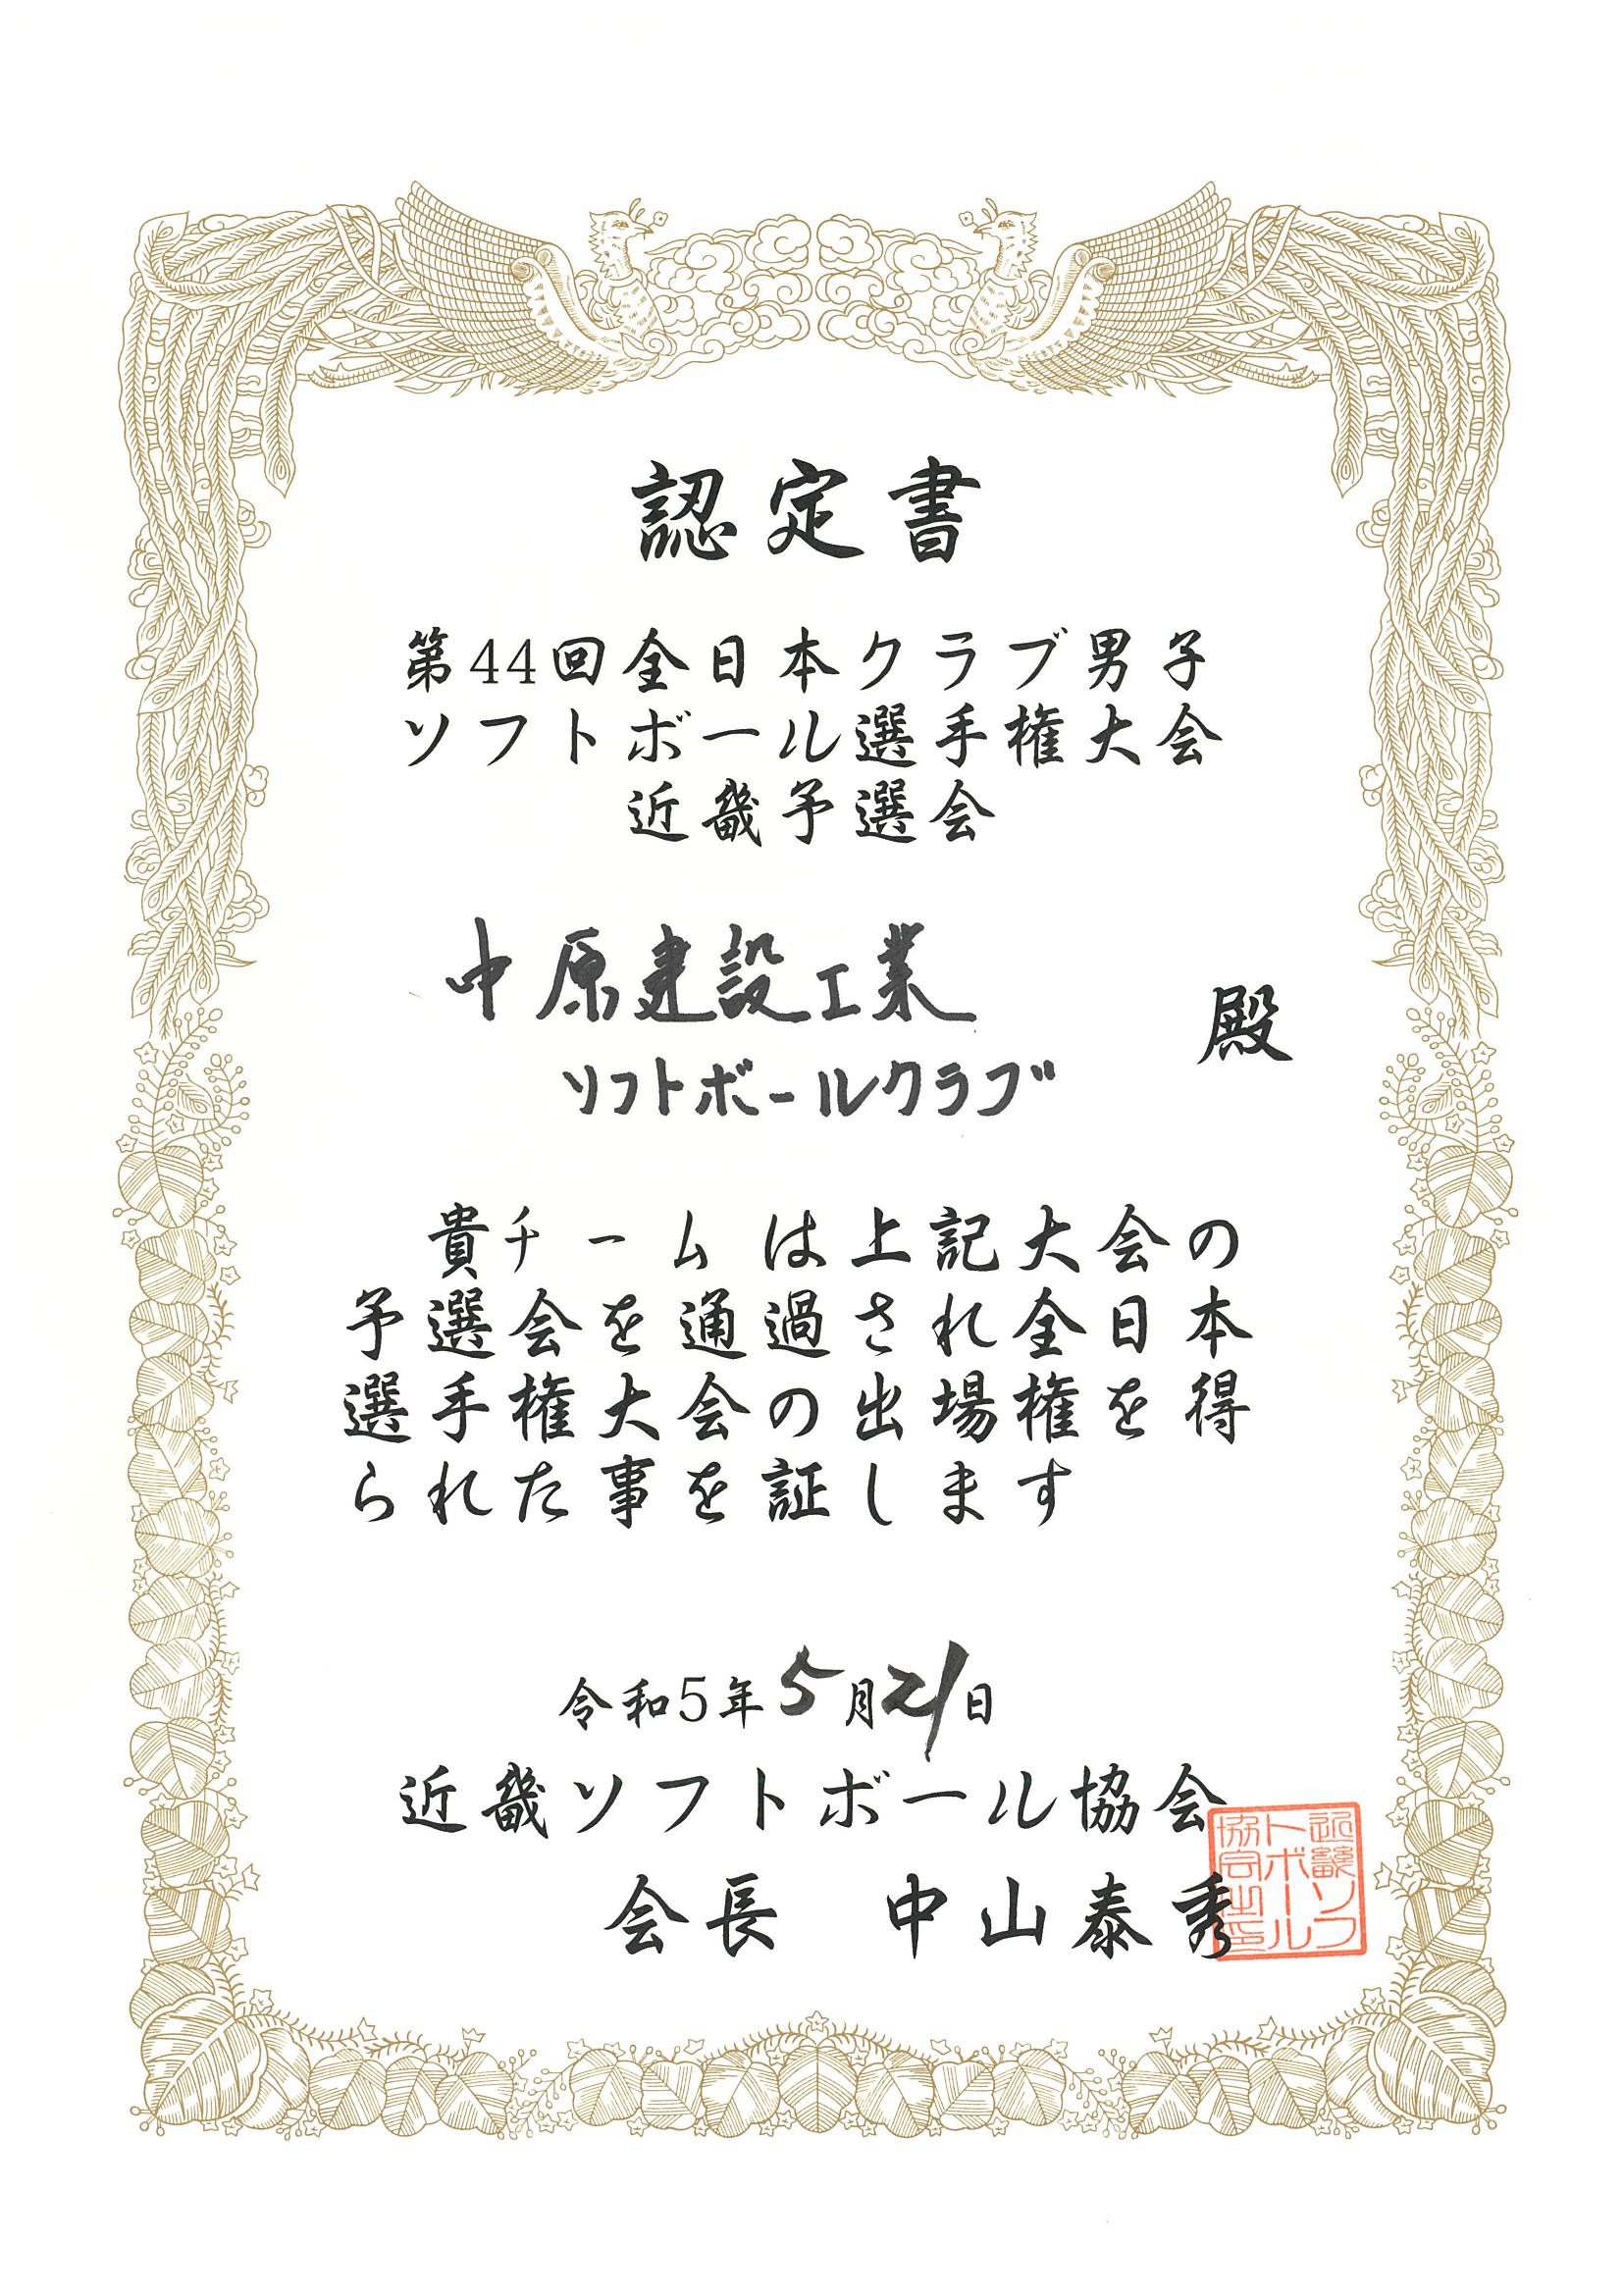 認定書
第44回全日本クラブ男子
ソフトボール選手権大会
近畿予選会
中原建設工業
ソフトボールクラブ
殿
貴チームは上記大会の
予選会を通過され全日本
選手権大会の出場権を得
られた事を証します
令和5年5月21日
近畿ソフトボール協会
会長 中山泰秀
近畿ソフ
トボール
協会之印